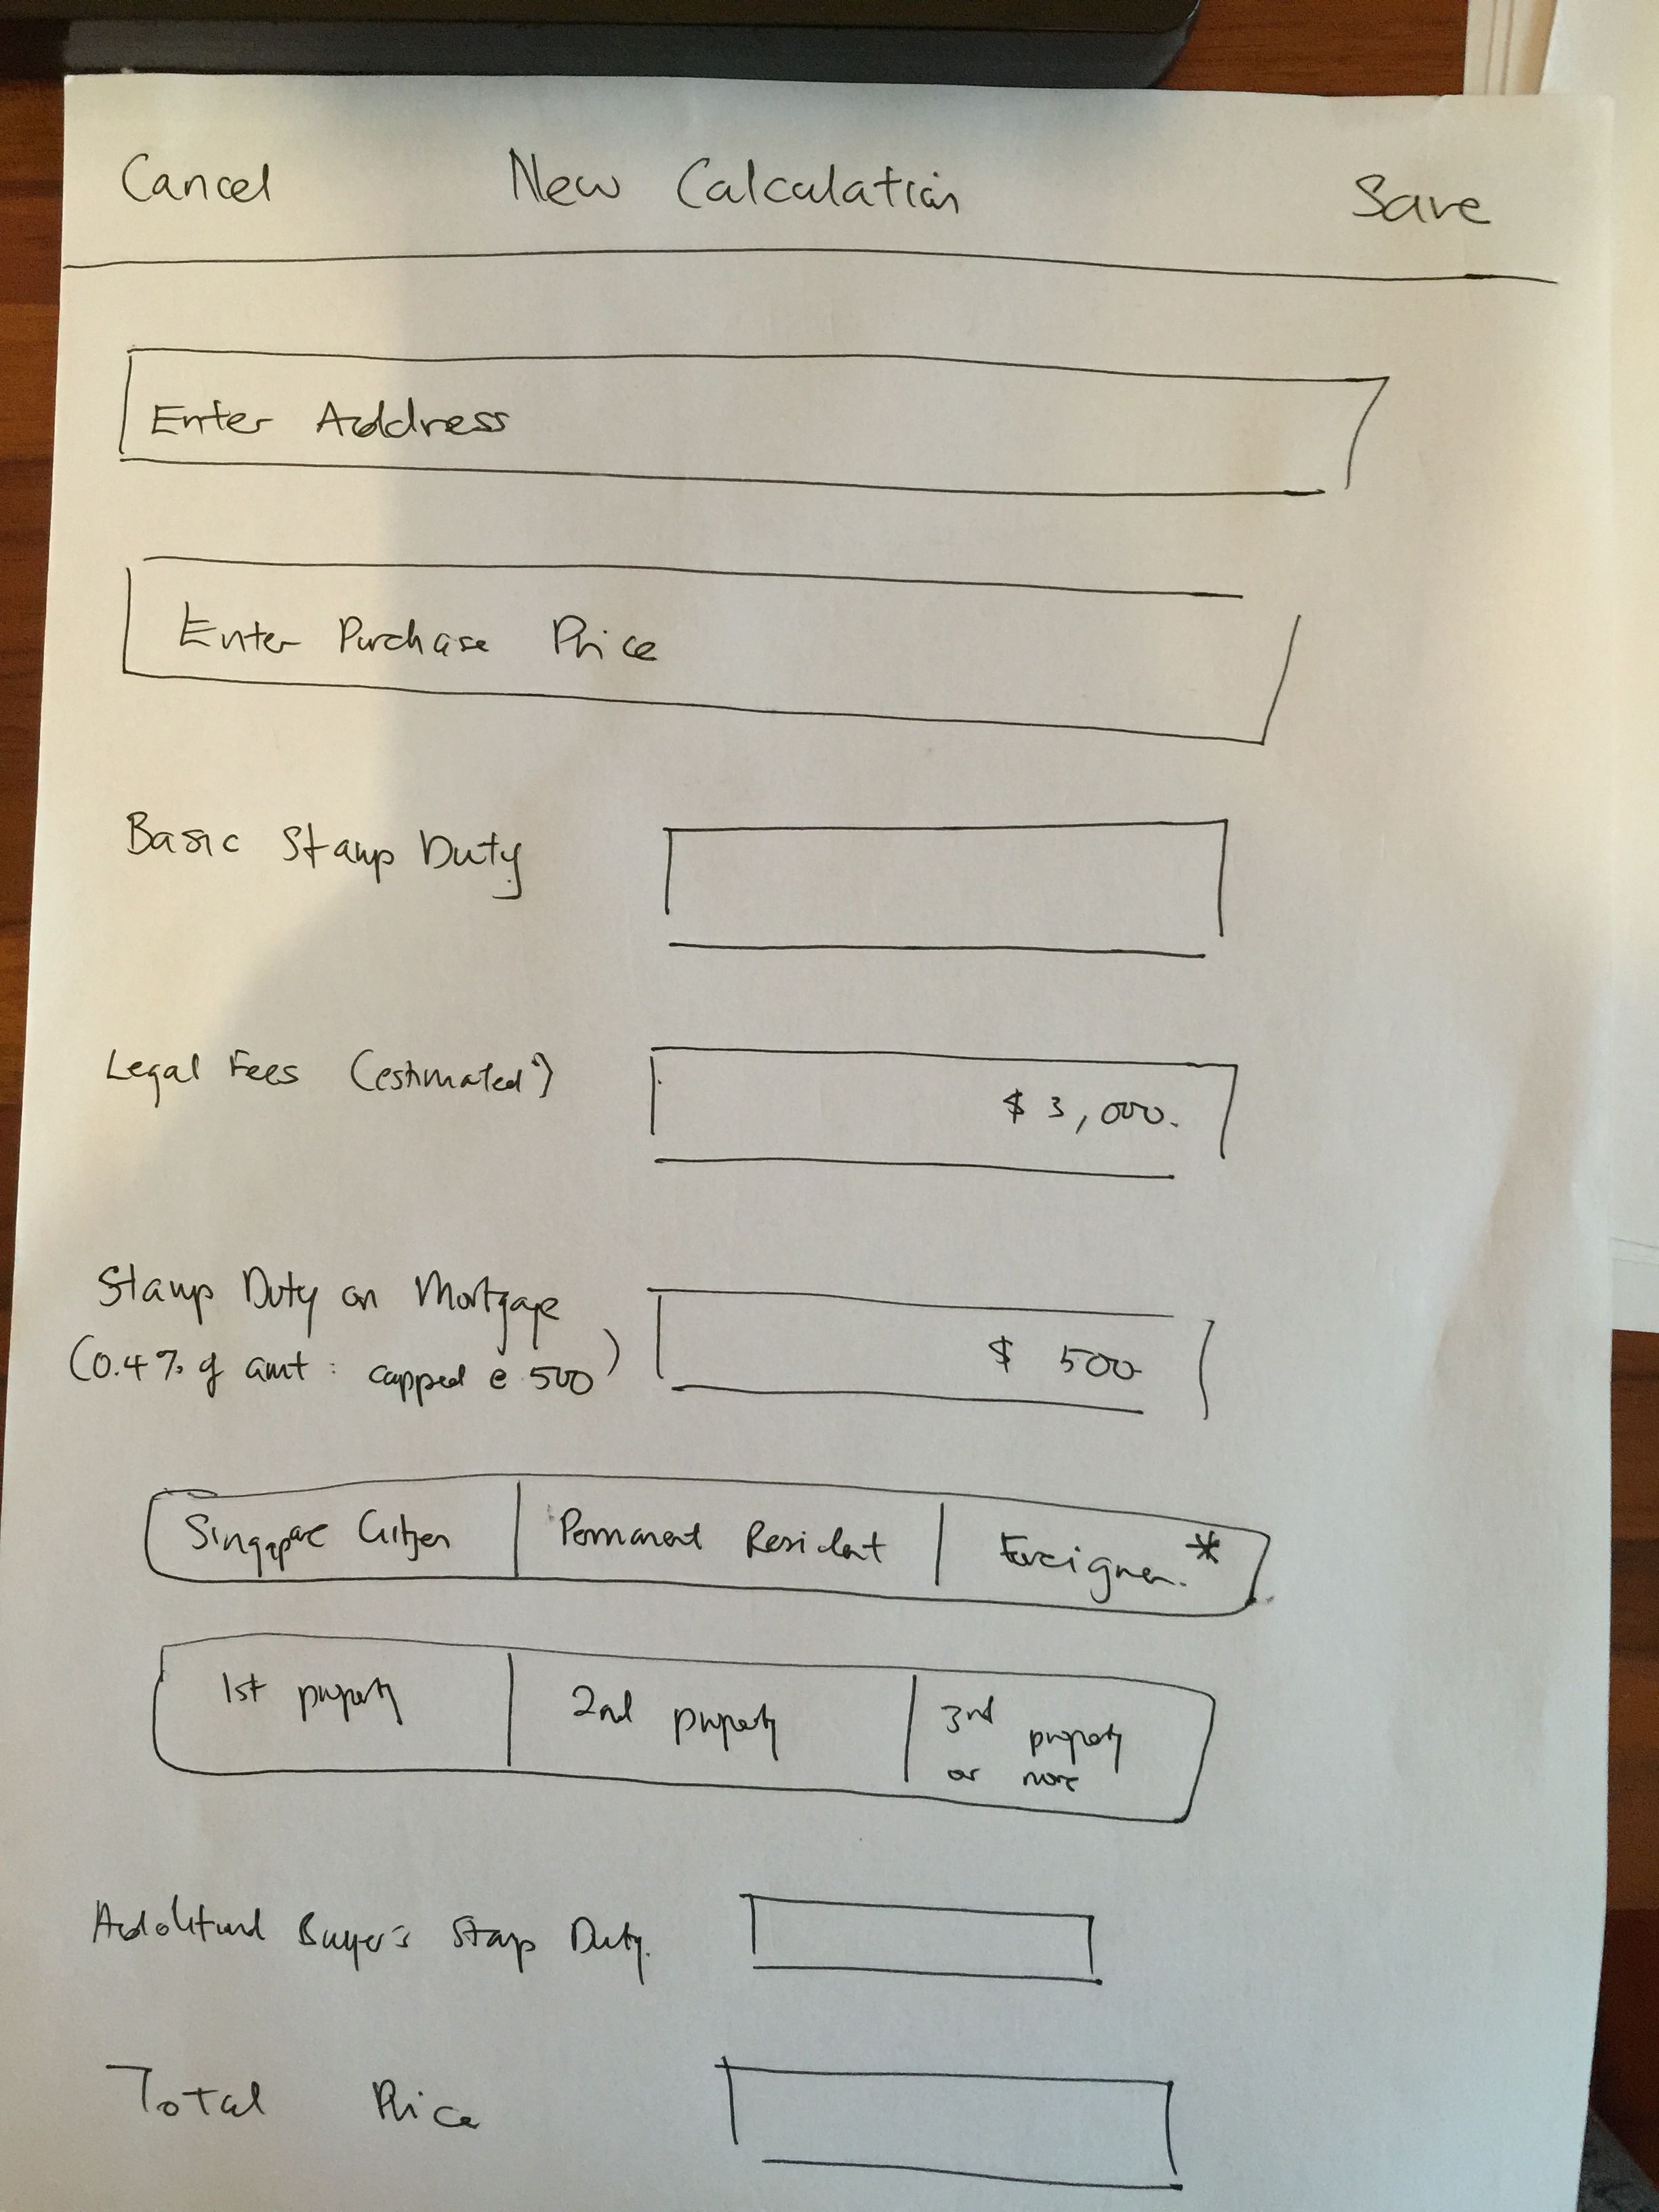 Cancel New Calculation Save
Enter Address
Enter Purchase Price
Basic Stamp Duty
Legal Fees (estimated*) $ 3,000.
Stamp Duty on Mortgage
(0.4% of amt : capped @ 500) $ 500
Singapore Citizen Permanent Resident Foreigner.*
1st property 2nd property 3rd property
or more
Additional Buyer's Stamp Duty.
Total Price